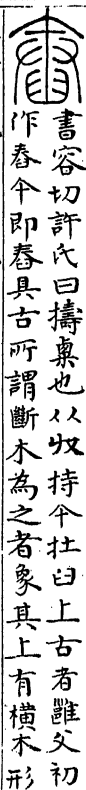 舂
書容切許氏曰擣粟也从収持午杜臼上古者雝父初
作舂午即舂具古所謂斷木為之者象其上有横木形